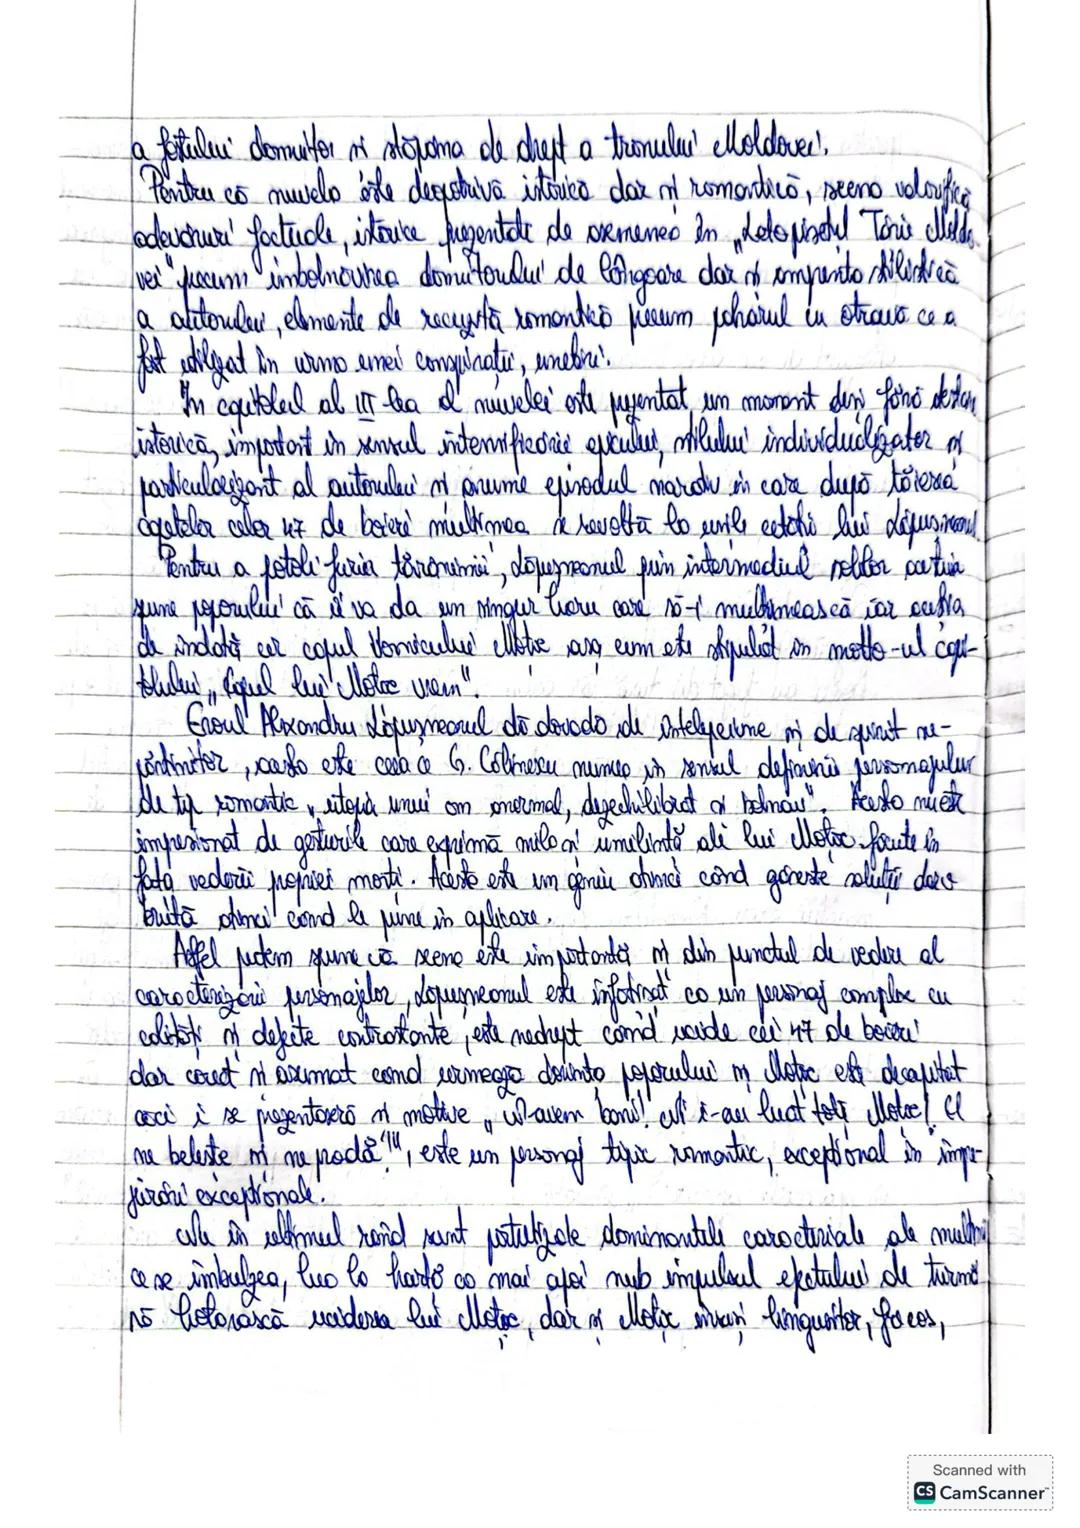 a fostului domnitor și stăpâna de drept a tronului Moldovei.
Pentru că nuvela este deopotrivă istorică dar și romantică, scena valorifică
adevăruri factuale, istorice prezentate de asemenea în „Letopisețul Țării Moldo
vei" precum îmbolnăvirea domnitorului de lângoare dar și amprenta stilistică
a autorului, elemente de recuzită romantică precum paharul cu otravă ce a
fost utilizat în urma unei conspirații, uneltiri.
În capitolul al III-lea al nuvelei este prezentat un moment deși fără
istorică, important în sensul intensificării epicului, stilului individualizator și
particularizant al autorului și anume episodul narativ în care după tăierea
capetelor celor 47 de boieri mulțimea se revoltă la ușile cetății lui Lăpușneanul
Pentru a potoli furia țărănimii, Lăpușneanul prin intermediul soliilor acestuia
spune poporului că îi va da un singur lucru care să-i mulțumească iar aceștia
de îndată cer capul Vornicului Moțoc așa cum este stipulat în motto-ul capi-
tolului „Capul lui Moțoc vrem".
Eroul Alexandru Lăpușneanul dă dovadă de înțelepciune și de spirit ne-
părtinitor, acesta este ceea ce G. Călinescu numea în sensul definirii personajului
de tip romantic „utopia unui om anormal, dezechilibrat și bolnav". Acesta nu este
impresionat de gesturile care exprimă milă și umilință ale lui Moțoc făcute în
fața vederii propriei morți. Acesta este un geniu atunci când găsește soluții dar o
brută atunci când le pune în aplicare.
Astfel putem spune că scena este importantă și din punctul de vedere al
caracterizării personajelor, Lăpușneanul este înfățișat ca un personaj complex cu
calități și defecte contrastante, este nedrept când ucide cei 47 de boieri
dar corect și asumat când urmează dorința poporului și Moțoc este decapitat
căci i se prezentaseră și motive „N-avem bani! Ni i-au luat toți Moțoc! El
ne belește și ne pradă!", este un personaj tipic romantic, excepțional în împre-
jurări excepționale.
Nu în ultimul rând sunt portretizate dominantele caracteriale ale mulțimii
ce se îmbulzea, lua la harță ca mai apoi sub impulsul efectului de turmă
să hotărască uciderea lui Moțoc, dar și Moțoc însuși lingușitor,